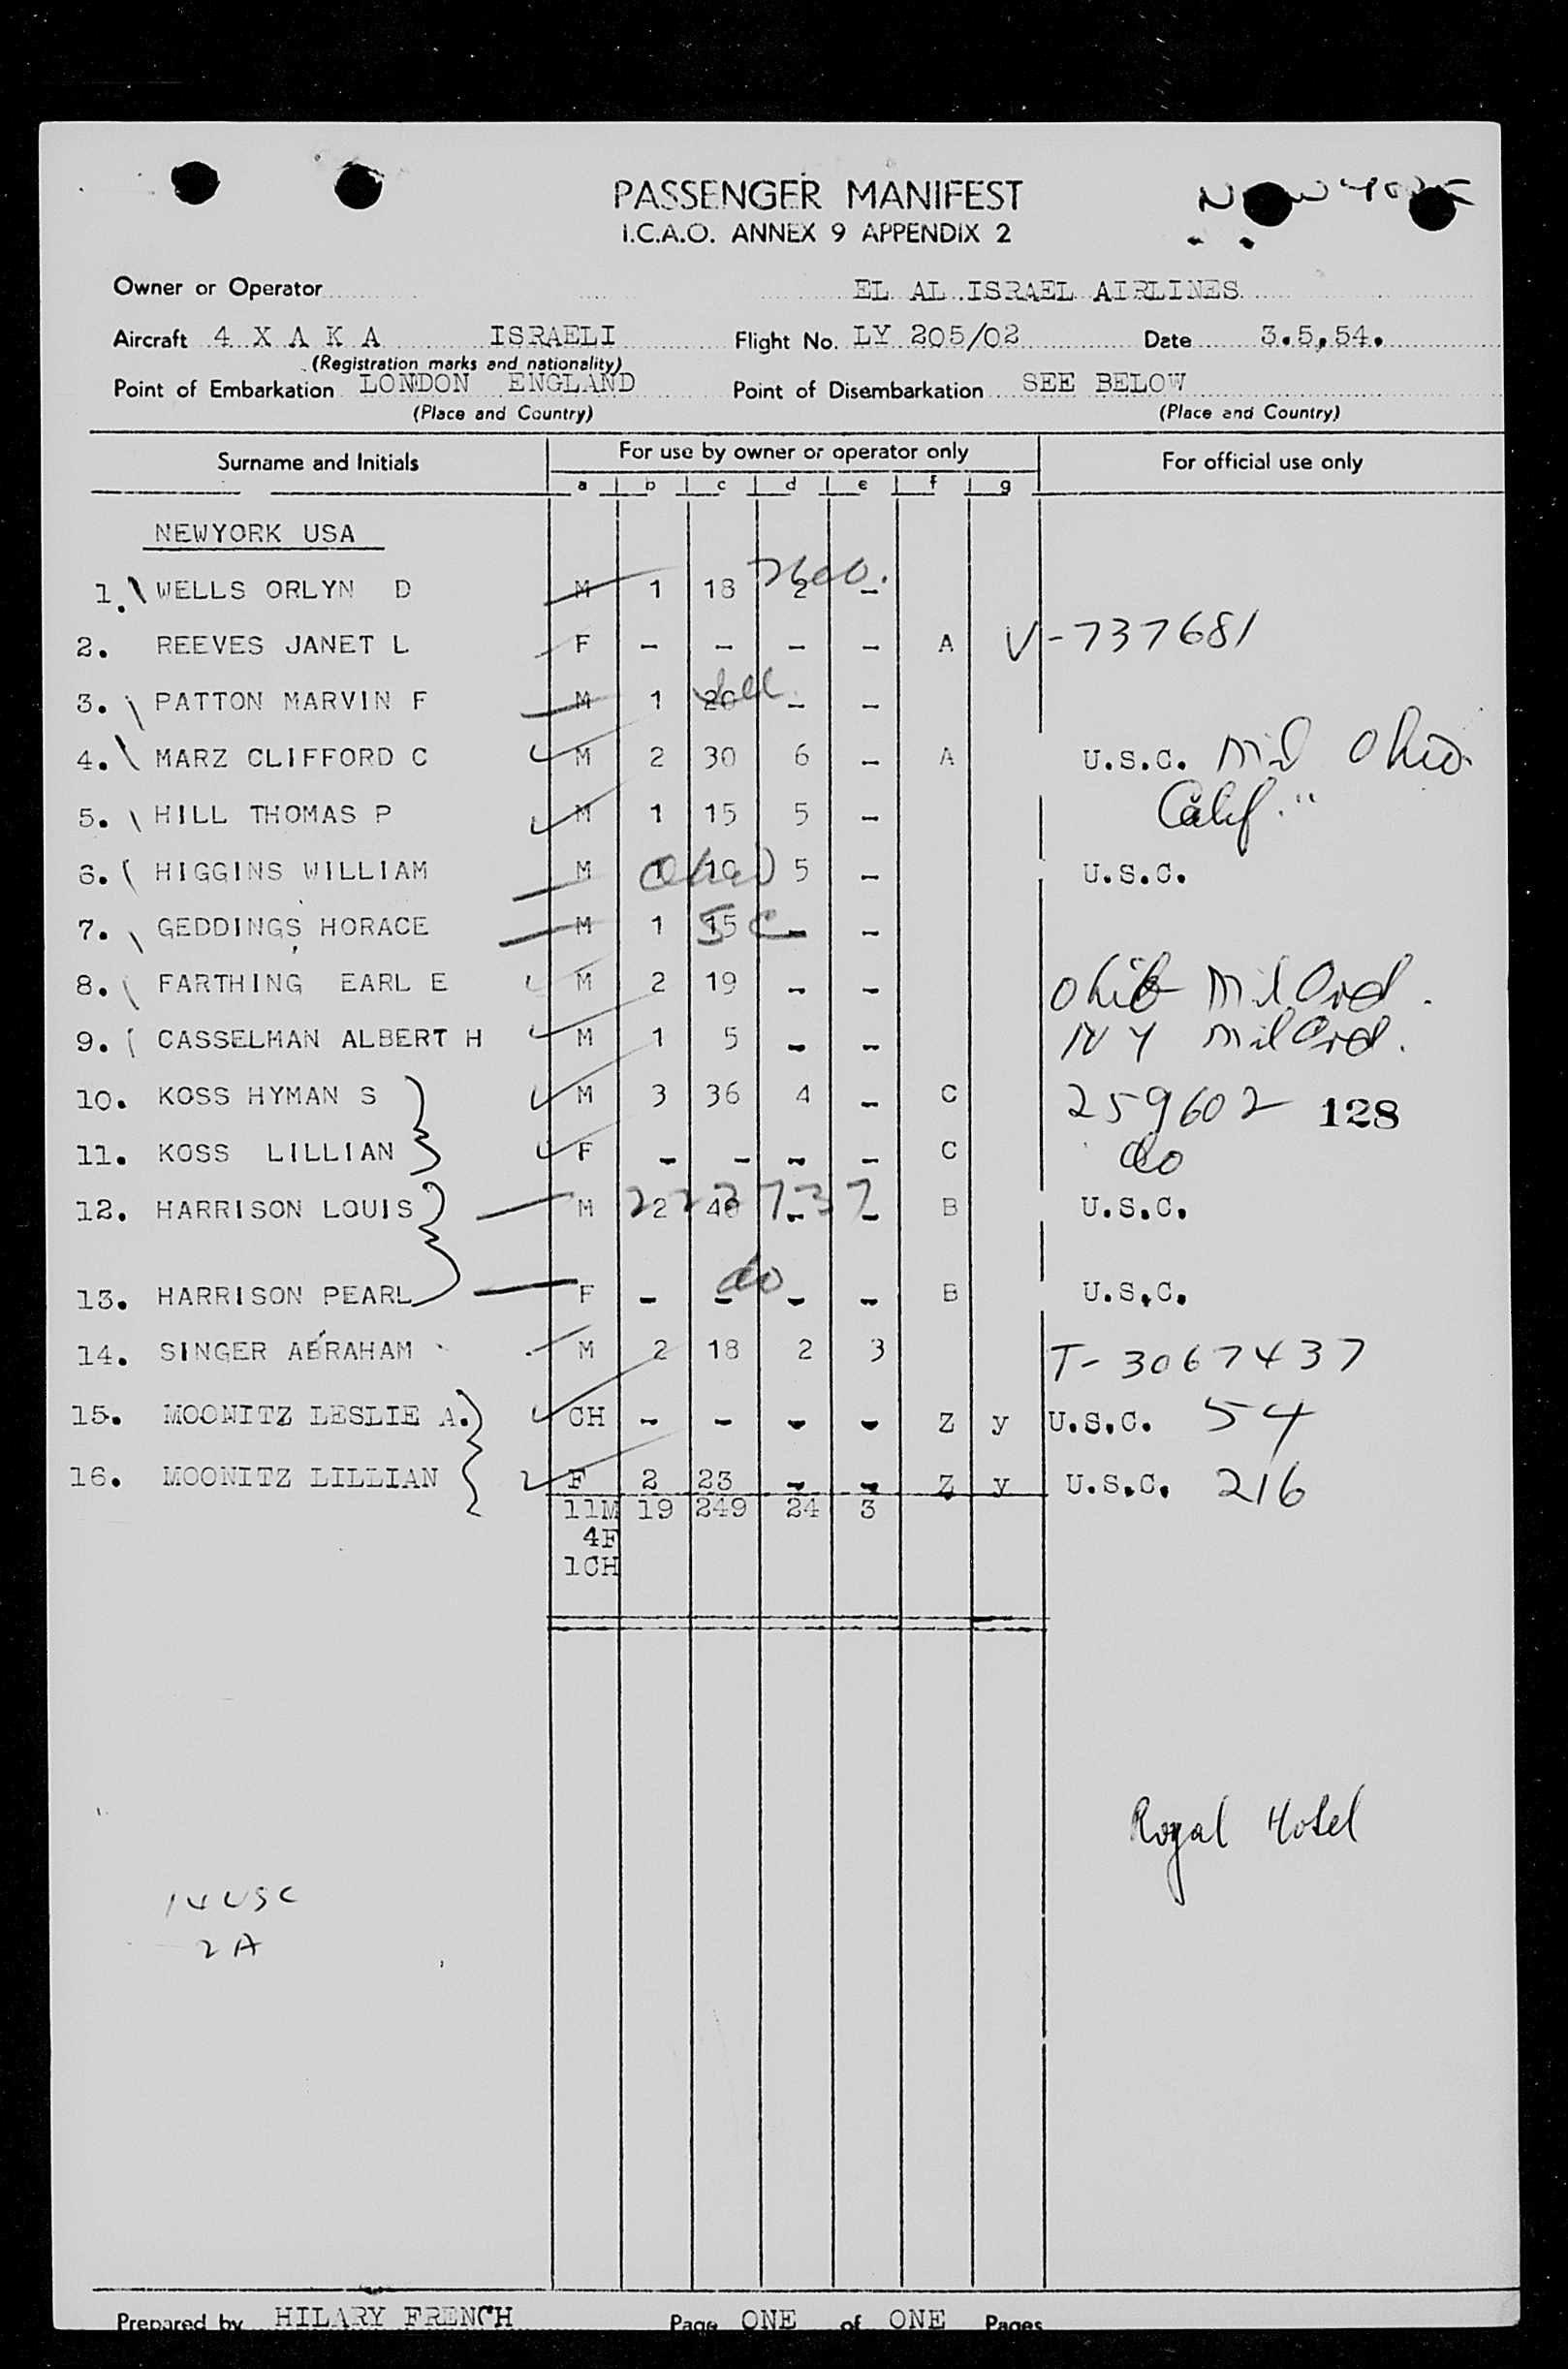 PASSENGER MANIFEST
I.C.A.O. ANNEX 9 APPENDIX 2
Owner or Operator EL AL ISRAEL AIRLINES
Aircraft 4 X A K A ISRAELI Flight No. LY 205/02 Date 3.5.54.
(Registration marks and nationality)
Point of Embarkation LONDON ENGLAND Point of Disembarkation SEE BELOW
(Place and Country) (Place and Country)
Surname and Initials For use by owner or operator only For official use only
a b c d e f g
NEWYORK USA
1. WELLS ORLYN D M 1 18 2 -
2. REEVES JANET L F - - - - A V-737681
3. PATTON MARVIN F M 1 20 - -
4. MARZ CLIFFORD C M 2 30 6 - A U.S.C. Mil Ohio
5. HILL THOMAS P M 1 15 5 - Calif. "
6. HIGGINS WILLIAM M 1 10 5 - Ohio U.S.C.
7. GEDDINGS HORACE M 1 15 - - SC
8. FARTHING EARL E M 2 19 - - Ohio Mil Ord.
9. CASSELMAN ALBERT H M 1 5 - - NY Mil Ord.
10. KOSS HYMAN S M 3 36 4 - C 259602 128
11. KOSS LILLIAN F - - - - C do
12. HARRISON LOUIS M 2 40 - - B 223737 U.S.C.
13. HARRISON PEARL F - - - - B do U.S.C.
14. SINGER ABRAHAM M 2 18 2 3 T-3067437
15. MOONITZ LESLIE A. CH - - - - Z y U.S.C. 54
16. MOONITZ LILLIAN F 2 23 - - Z y U.S.C. 216
11M 19 249 24 3
4F
1CH
Royal Hotel
14 USC
2 A
Prepared by HILARY FRENCH Page ONE of ONE Pages